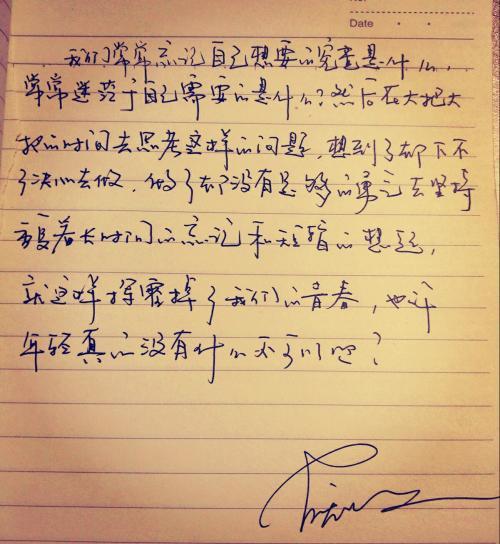 Date
我们常常忘记自己想要的究竟是什么,
常常迷茫于自己需要的是什么?然后在大把大
把的时间去思考这样的问题,想到了却下不
了决心去做,做了却没有足够的勇气去坚持
着长时间的忘记和短暂的想起,
就这样挥霍掉了我们的青春,也许
年轻真的没有什么不可以吧?